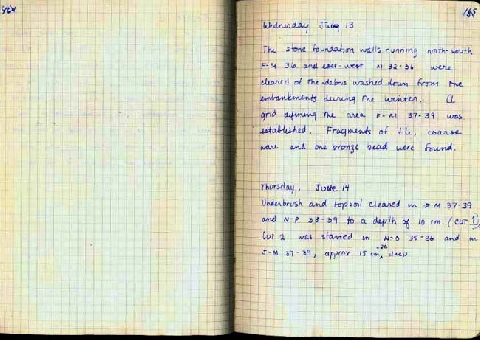 185
Wednesday June 13
The stone foundation walls running north-south
and east-west N 32-36 were
cleared of the debris washed down from the
embankments during the winter. A
grid defining the area K-M 37-39 was
established. Fragments of coarse
ware and one bronze bead were found.
Thursday, June 14
Underbrush and topsoil cleared in M 37-39
and N-P 38-39 to a depth of 10 cm (Cut 1)
Cut 2 was started in N-O 35-36 and in
J-M 37-39, approx 15 cm, deep